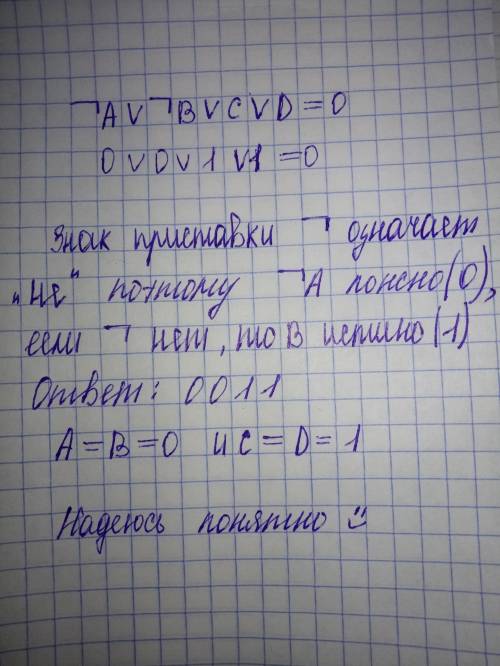 ¬A ∨ ¬B ∨ C ∨ D = 0
0 ∨ 0 ∨ 1 ∨ 1 = 0
Знак приставки ¬ означает
"не" поэтому ¬А ложно (0),
если ¬ нет, то В истино (1)
Ответ: 0011
А = В = 0 и С = D = 1
Надеюсь понятно :)